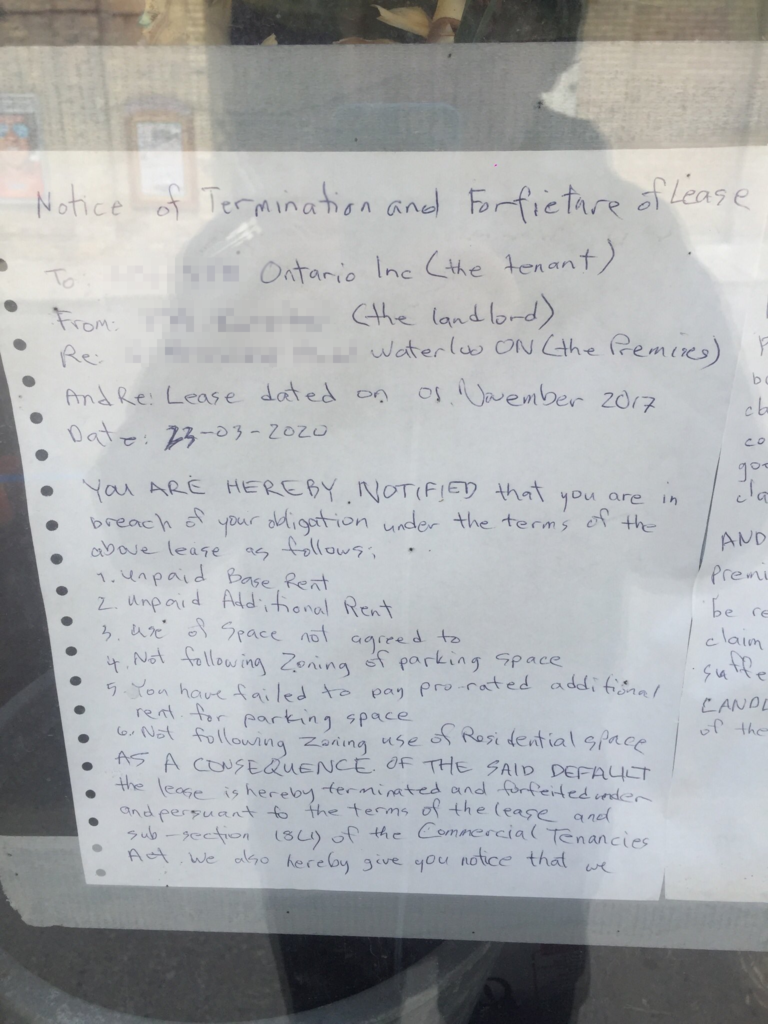 Notice of Termination and Forfieture of Lease
To: Ontario Inc (the tenant)
From: (the landlord)
Re: Waterloo ON (the Premises)
And Re: Lease dated on 01. November 2017
Date: 23-03-2020
YOU ARE HEREBY NOTIFIED that you are in
breach of your obligation under the terms of the
above lease as follows:
1. Unpaid Base Rent
2. Unpaid Additional Rent
3. Use of Space not agreed to
4. Not following Zoning of parking space
5. You have failed to pay pro-rated additional
rent for parking space
6. Not following Zoning use of Residential space
AS A CONSEQUENCE OF THE SAID DEFAULT
the lease is hereby terminated and forfeited under
and persuant to the terms of the lease and
sub-section 18(1) of the Commercial Tenancies
Act. We also hereby give you notice that we
AND
Premi
be re
claim
suffe
LANDL
of the